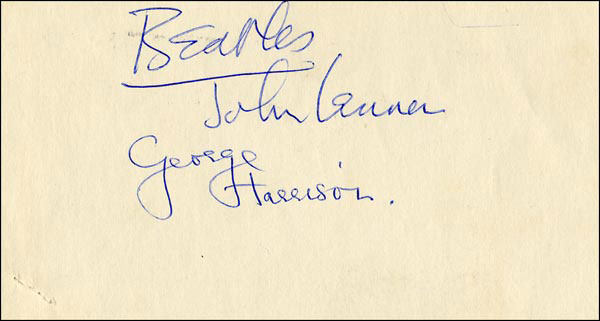 Beatles
John Lennon
George
Harrison.